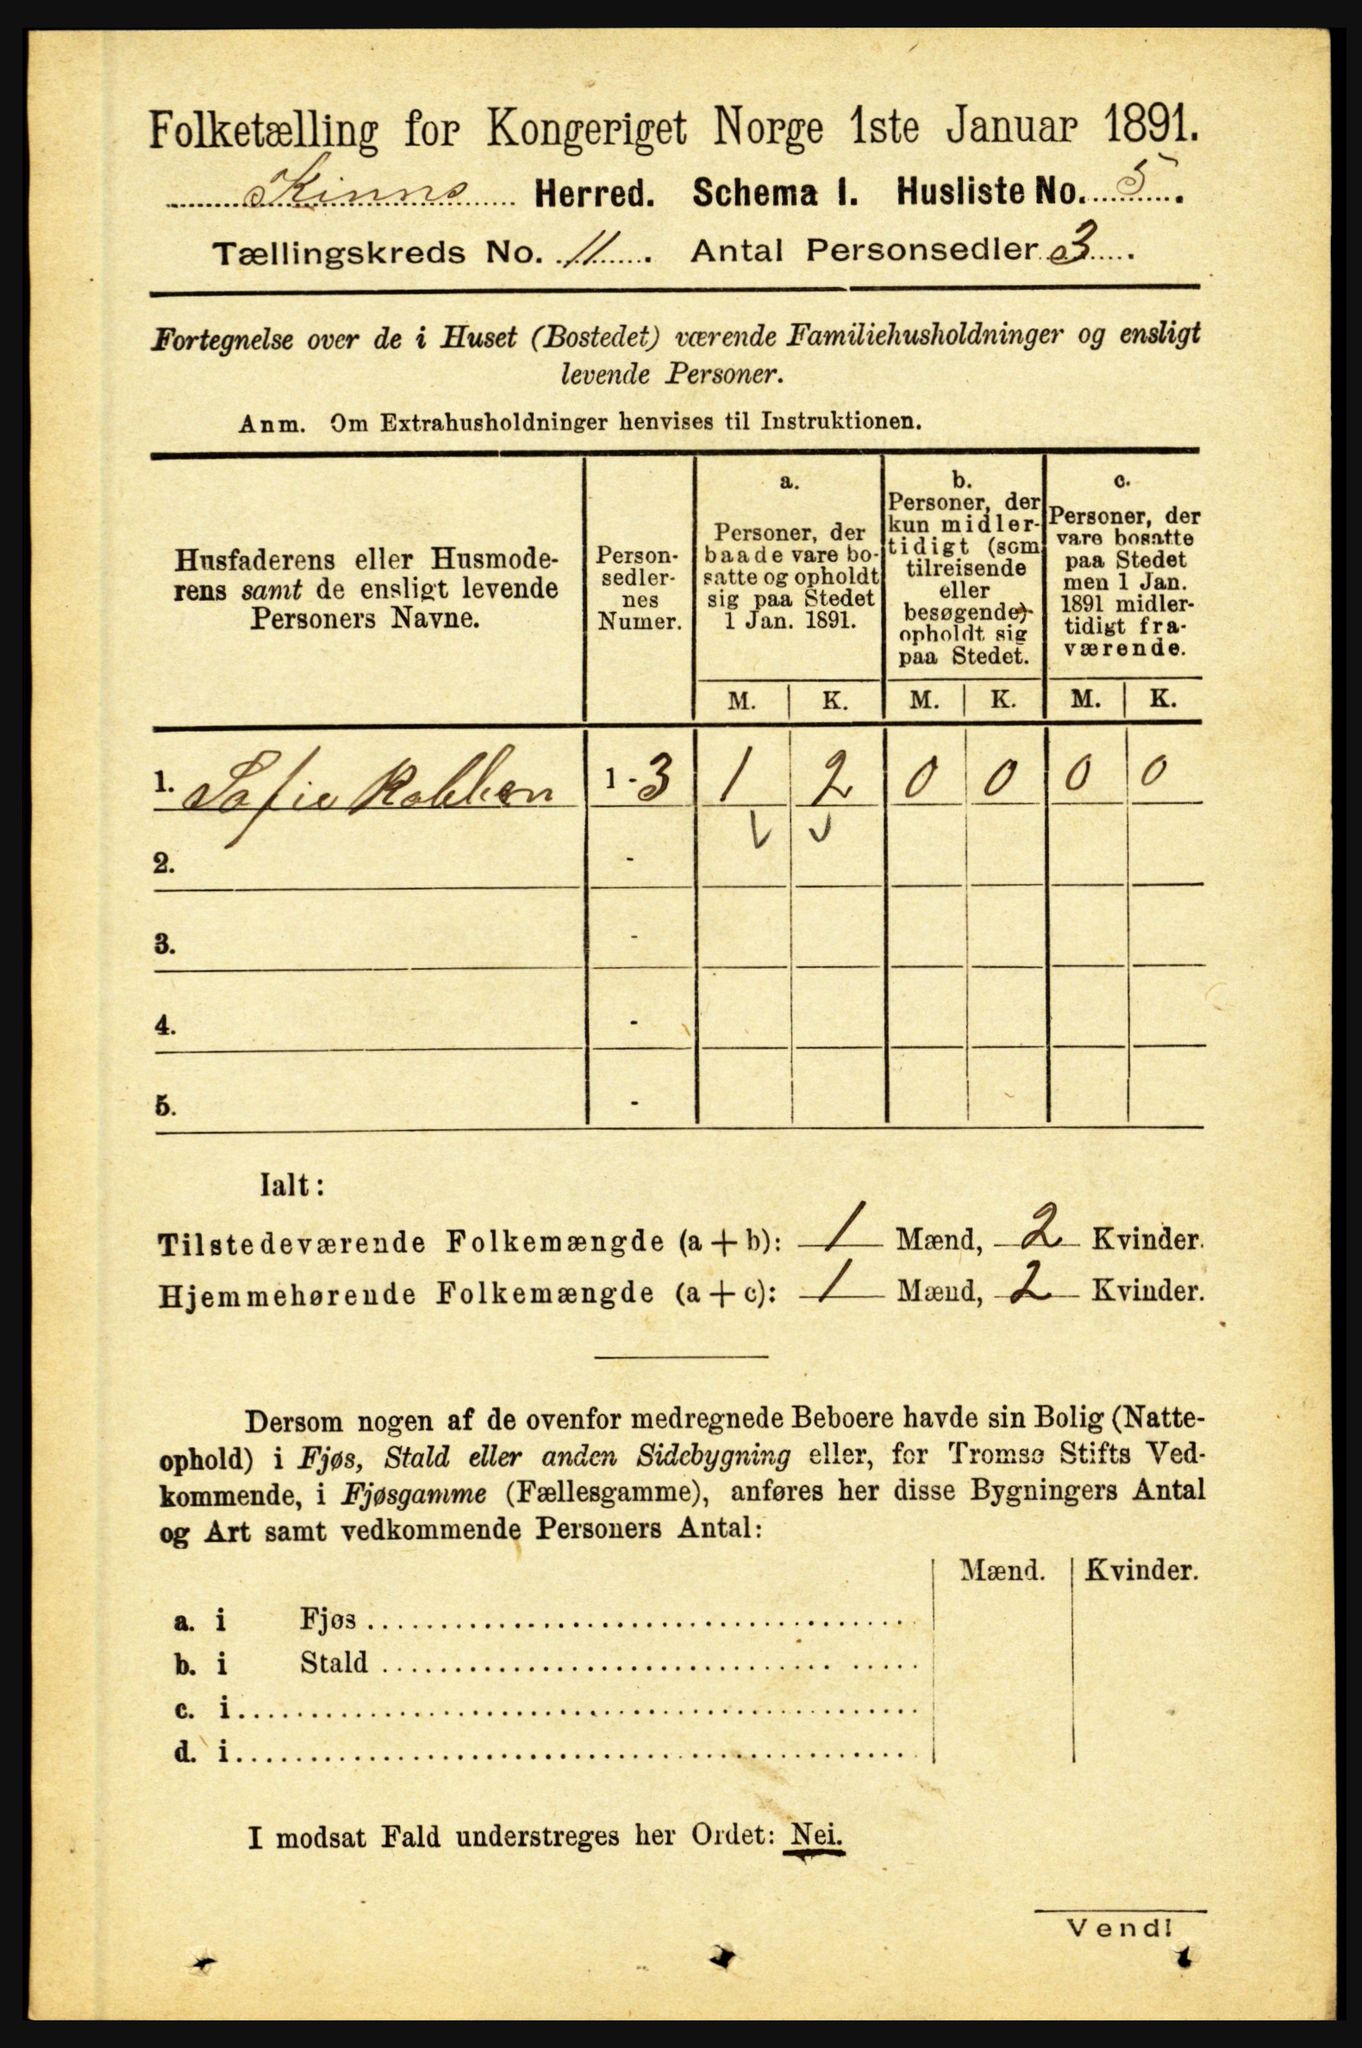 Folketælling for Kongeriget Norge 1ste Januar 1891.
Kinns Herred. Schema I. Husliste No. 5.
Tællingskreds No. 11. Antal Personsedler 3.
Fortegnelse over de i Huset (Bostedet) værende Familiehusholdninger og ensligt
levende Personer.
Anm. Om Extrahusholdninger henvises til Instruktionen.
Husfaderens eller Husmode-
rens samt de ensligt levende
Personers Navne.
Person-
sedler-
nes
Numer.
a.
Personer, der
baade vare bo-
satte og opholdt
sig paa Stedet
1 Jan. 1891.
b.
Personer, der
kun midler-
tidigt (som
tilreisende
eller
besøgende)
opholdt sig
paa Stedet.
c.
Personer, der
vare bosatte
paa Stedet
men 1 Jan.
1891 midler-
tidigt fra-
værende.
M. K. M. K. M. K.
1. Sofie Kobben 1-3 1 2 0 0 0 0
2. -
3. -
4. -
5. -
Ialt:
Tilstedeværende Folkemængde (a+b): 1 Mænd, 2 Kvinder.
Hjemmehørende Folkemængde (a+c): 1 Mænd, 2 Kvinder.
Dersom nogen af de ovenfor medregnede Beboere havde sin Bolig (Natte-
ophold) i Fjøs, Stald eller anden Sidebygning eller, for Tromsø Stifts Ved-
kommende, i Fjøsgamme (Fællesgamme), anføres her disse Bygningers Antal
og Art samt vedkommende Personers Antal:
Mænd. Kvinder.
a. i Fjøs
b. i Stald
c. i
d. i
I modsat Fald understreges her Ordet: Nei.
Vend!